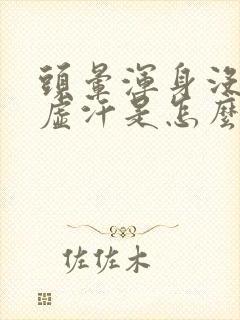 頭暈渾身沒
虛汗是怎麼
佐佐木